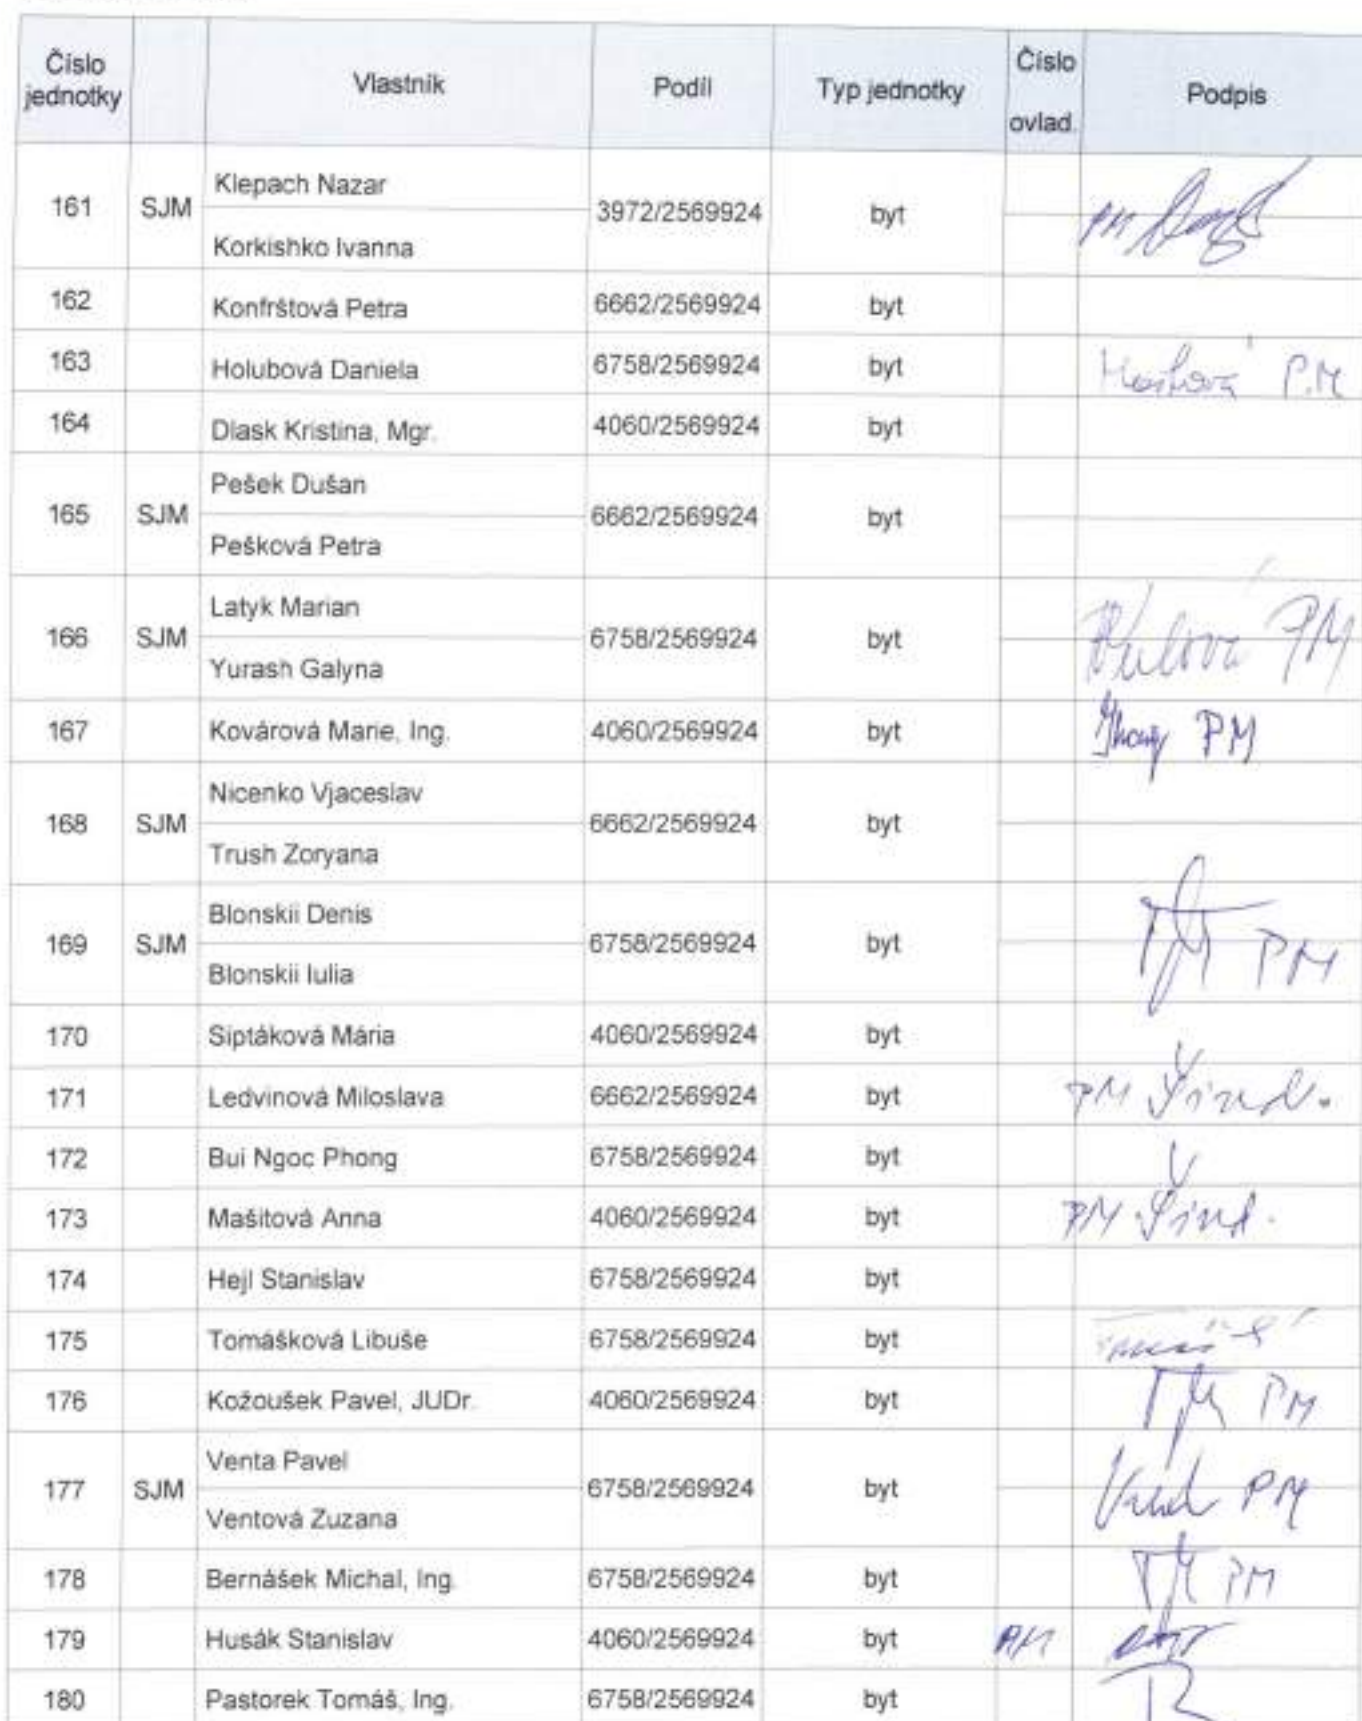 Číslo jednotky Vlastník Podíl Typ jednotky Číslo ovlad. Podpis
161 SJM Klepach Nazar 3972/2569924 byt PM
Korkishko Ivanna
162 Konfrštová Petra 6662/2569924 byt
163 Holubová Daniela 6758/2569924 byt P.M
164 Dlask Kristina, Mgr. 4060/2569924 byt
165 SJM Pešek Dušan 6662/2569924 byt
Pešková Petra
166 SJM Latyk Marian 6758/2569924 byt PM
Yurash Galyna
167 Kovárová Marie, Ing. 4060/2569924 byt PM
168 SJM Nicenko Vjaceslav 6662/2569924 byt
Trush Zoryana
169 SJM Blonskii Denis 6758/2569924 byt PM
Blonskii Iulia
170 Siptáková Mária 4060/2569924 byt
171 Ledvinová Miloslava 6662/2569924 byt PM
172 Bui Ngoc Phong 6758/2569924 byt
173 Mašitová Anna 4060/2569924 byt PM
174 Hejl Stanislav 6758/2569924 byt
175 Tomášková Libuše 6758/2569924 byt
176 Kožoušek Pavel, JUDr. 4060/2569924 byt PM
177 SJM Venta Pavel 6758/2569924 byt PM
Ventová Zuzana
178 Bernášek Michal, Ing. 6758/2569924 byt PM
179 Husák Stanislav 4060/2569924 byt PM
180 Pastorek Tomáš, Ing. 6758/2569924 byt